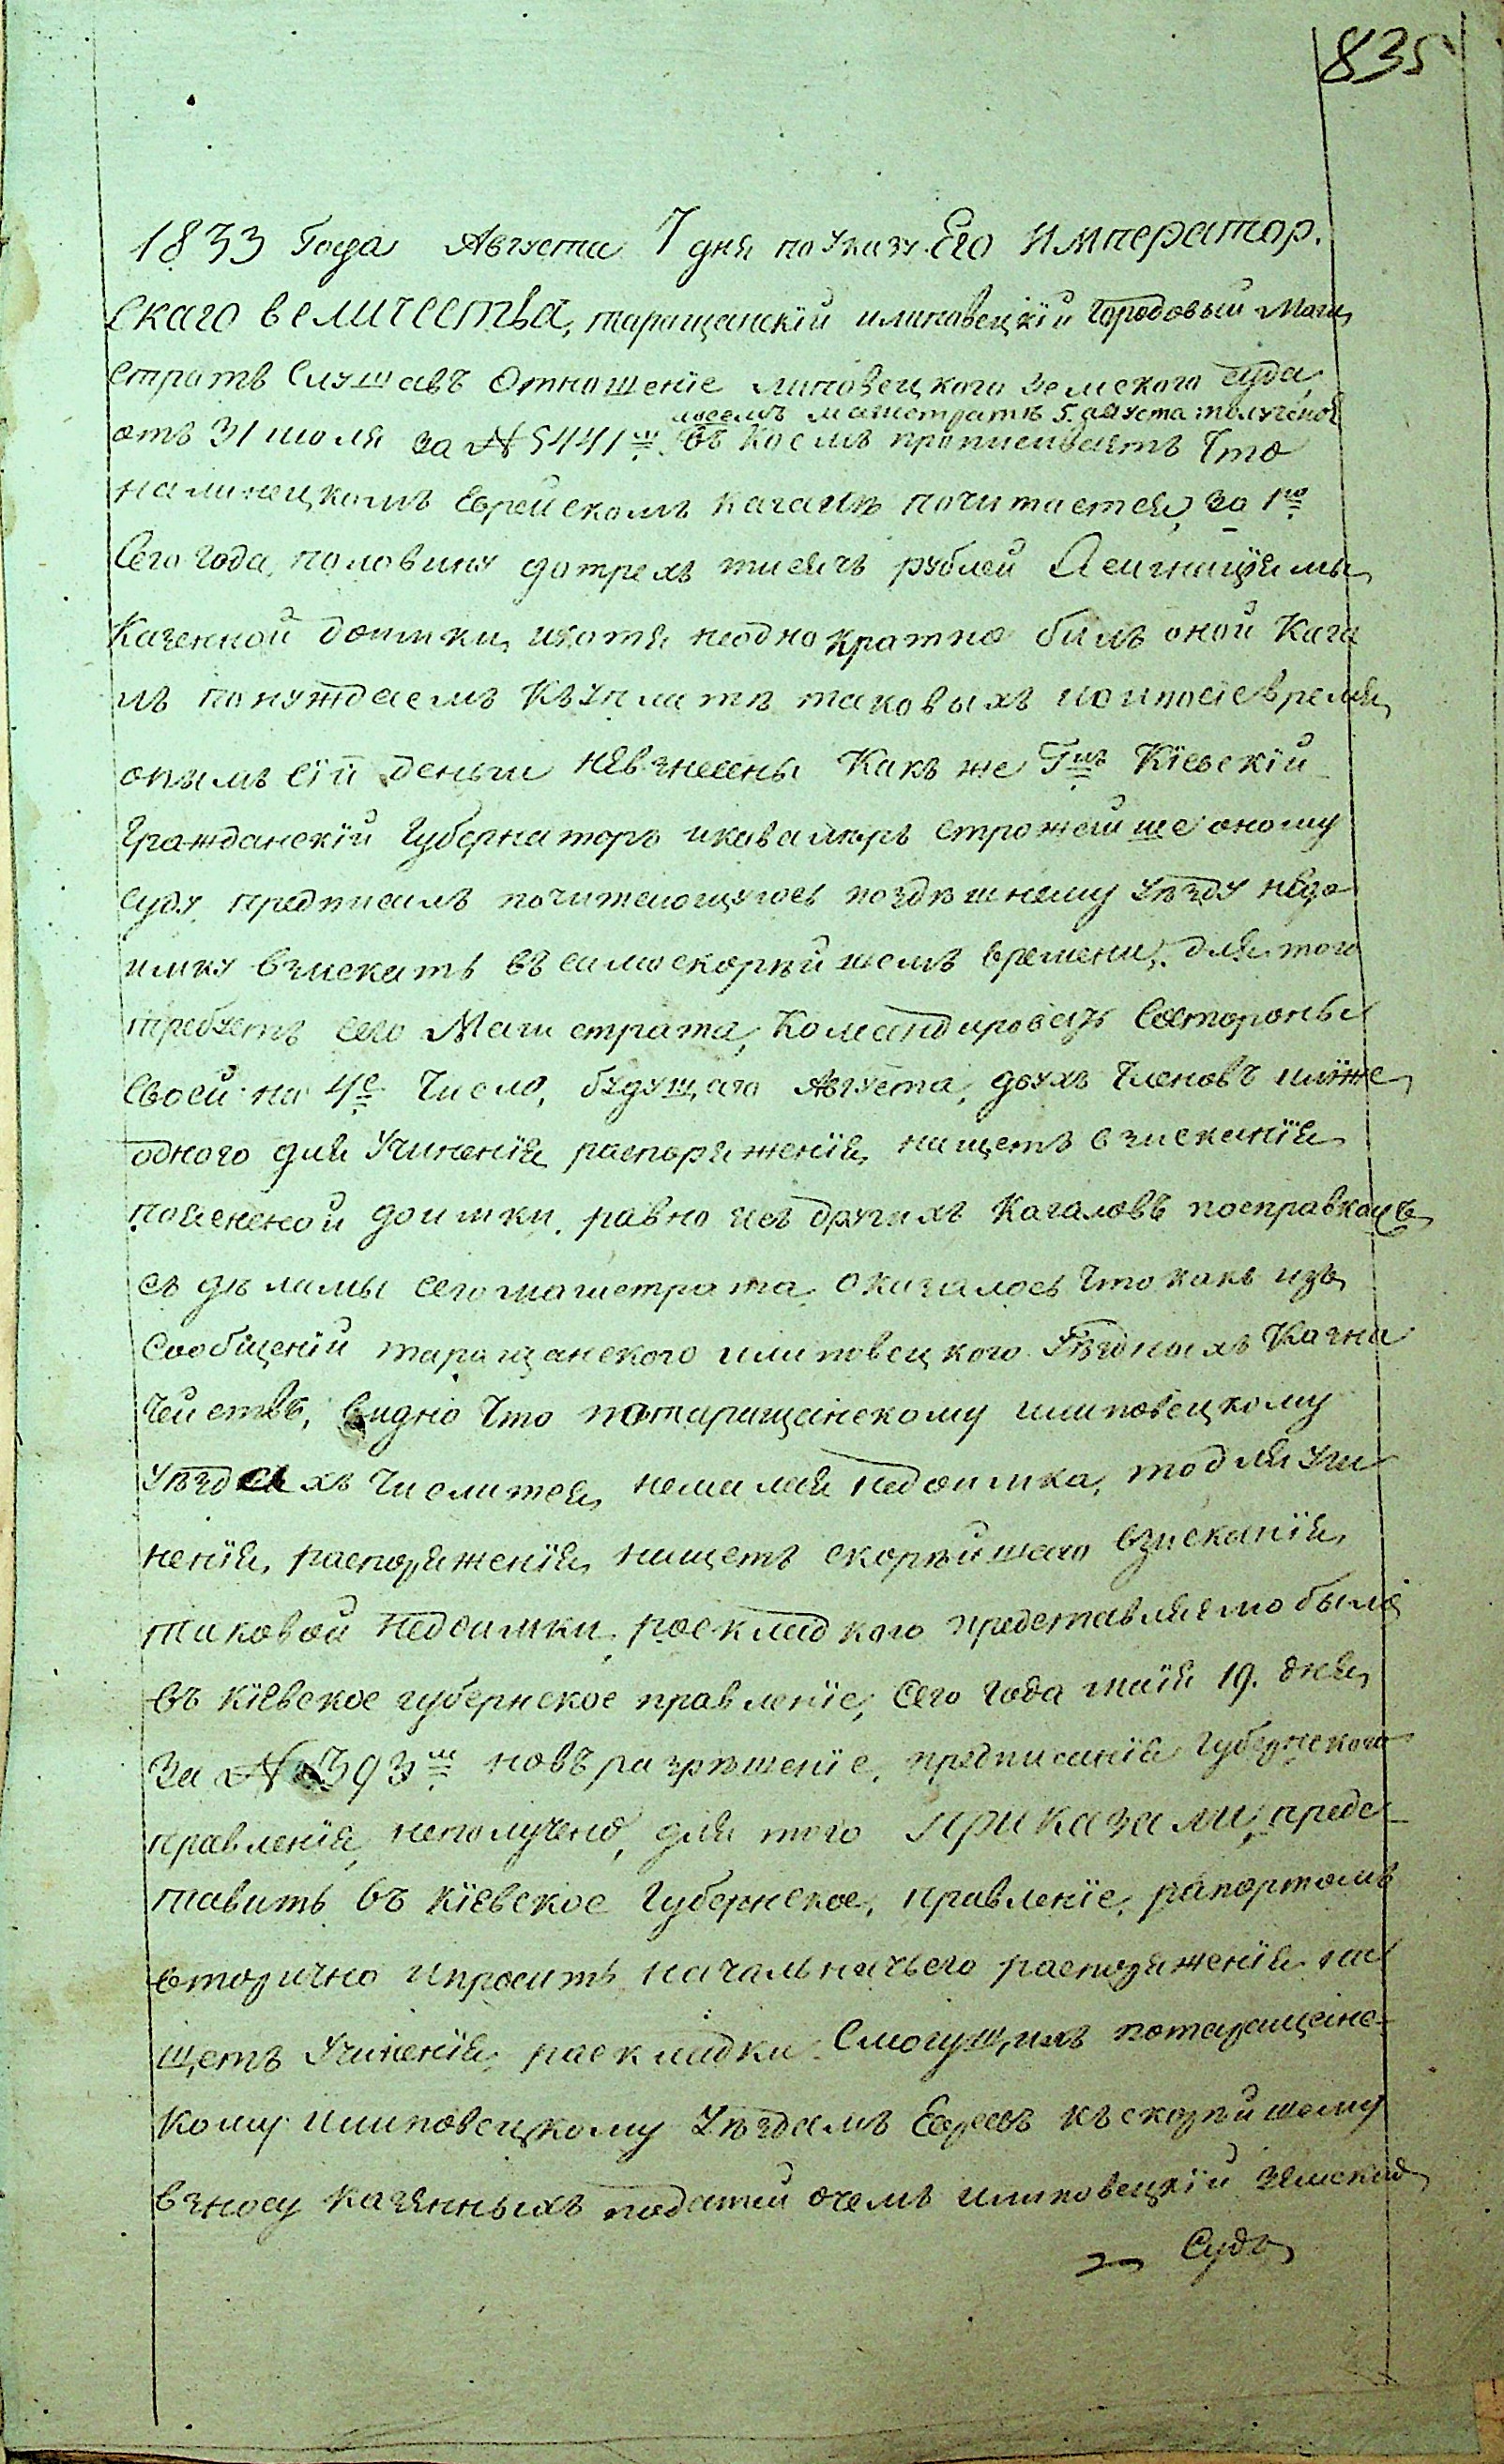 835
1833 Года Августа 7 дня по указу Его Император.
скаго величества, таращанскій илиповецкій Городовый Маги
стратъ Слушавъ Отношеніе липовецкого Земского суда
магистратѣ 5. августа полученое
отъ 31 июля за № 5441м. въ коемъ прописываетъ что
налинецкомъ Еврейскомъ кагалѣ почитается, за 1ю
Сего года, половину дотрехъ тисячъ рублей Асигнацїямы
Казенной доимки, ихотя неоднократно билъ оной Кага
лъ понуждаемъ къуплатѣ таковыхъ ноипосіе время,
онымъ сїй деньги невзнесены Какъ же Гнъ Кїевскїй
Гражданскїй Губернаторъ икавалѣръ строжайше оному
суду предписалъ почитающуюсь поздѣшнему уѣзду недо
имку взискать въ самоскорѣйшемъ времени, для того
требуетъ сего Магистрата, Командировать Состороны
Своей на 4е Число, будущаго Августа, двухъ Членовъ илиже
одного для Учиненія распоряженія, нащетъ взисканія
поясненой доимки, равно исъ другихъ Кагаловъ посправкацъ
съ дѣламы сего магистрата, оказалось что какъ изъ
Сообщеній таращанского илиповецкого Уѣздныхъ Казна
чействъ, видно что потаращанскому илиповецкому
уѣздахъ числится, немалая недоимка, то для учи
ненія, распоряженія, нащетъ скорѣйшаго взисканія,
таковой недоимки, роскладкого представляемо было
въ Кїевское губернское правленїе, Сего года мая 19. дня,
За № 393м новъ разрѣшенїе, предписанїя Губернского
правленія, неполучено, для того приказали, предс
тавить въ Кїевское Губернское, правленїе, рапортомъ
вторично ипросить начальничьего распоряженія на
щетъ Учиненія, раскладки Смогущихъ потаращанс-
кому илиповецкому Уѣздамъ Евреевъ къскорѣйшему
взносу казенныхъ податей очемъ илиповецкїй земскій
Судъ